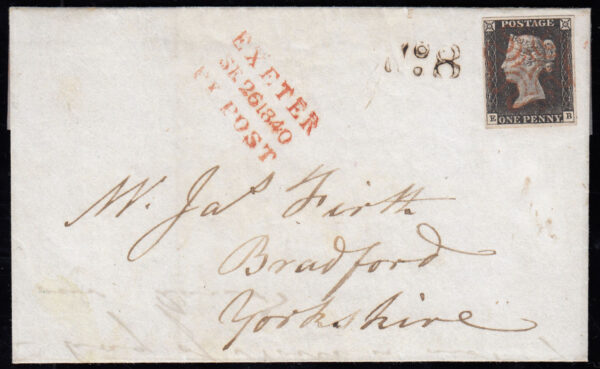 EXETER
SE 26 1840
PY POST
No. 8
POSTAGE
ONE PENNY
E B
Mr. Jas Firth
Bradford
Yorkshire